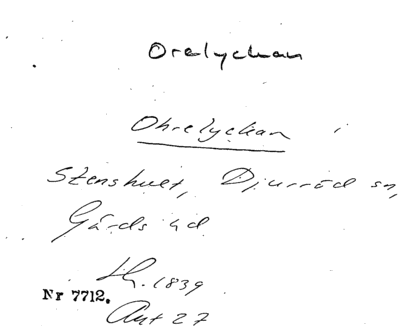 Orelyckan
Ohrelyckan i
Stenshult, Djurröd sn,
Gärds hd
Lh. 1839
Nr 7712.
Akt 27